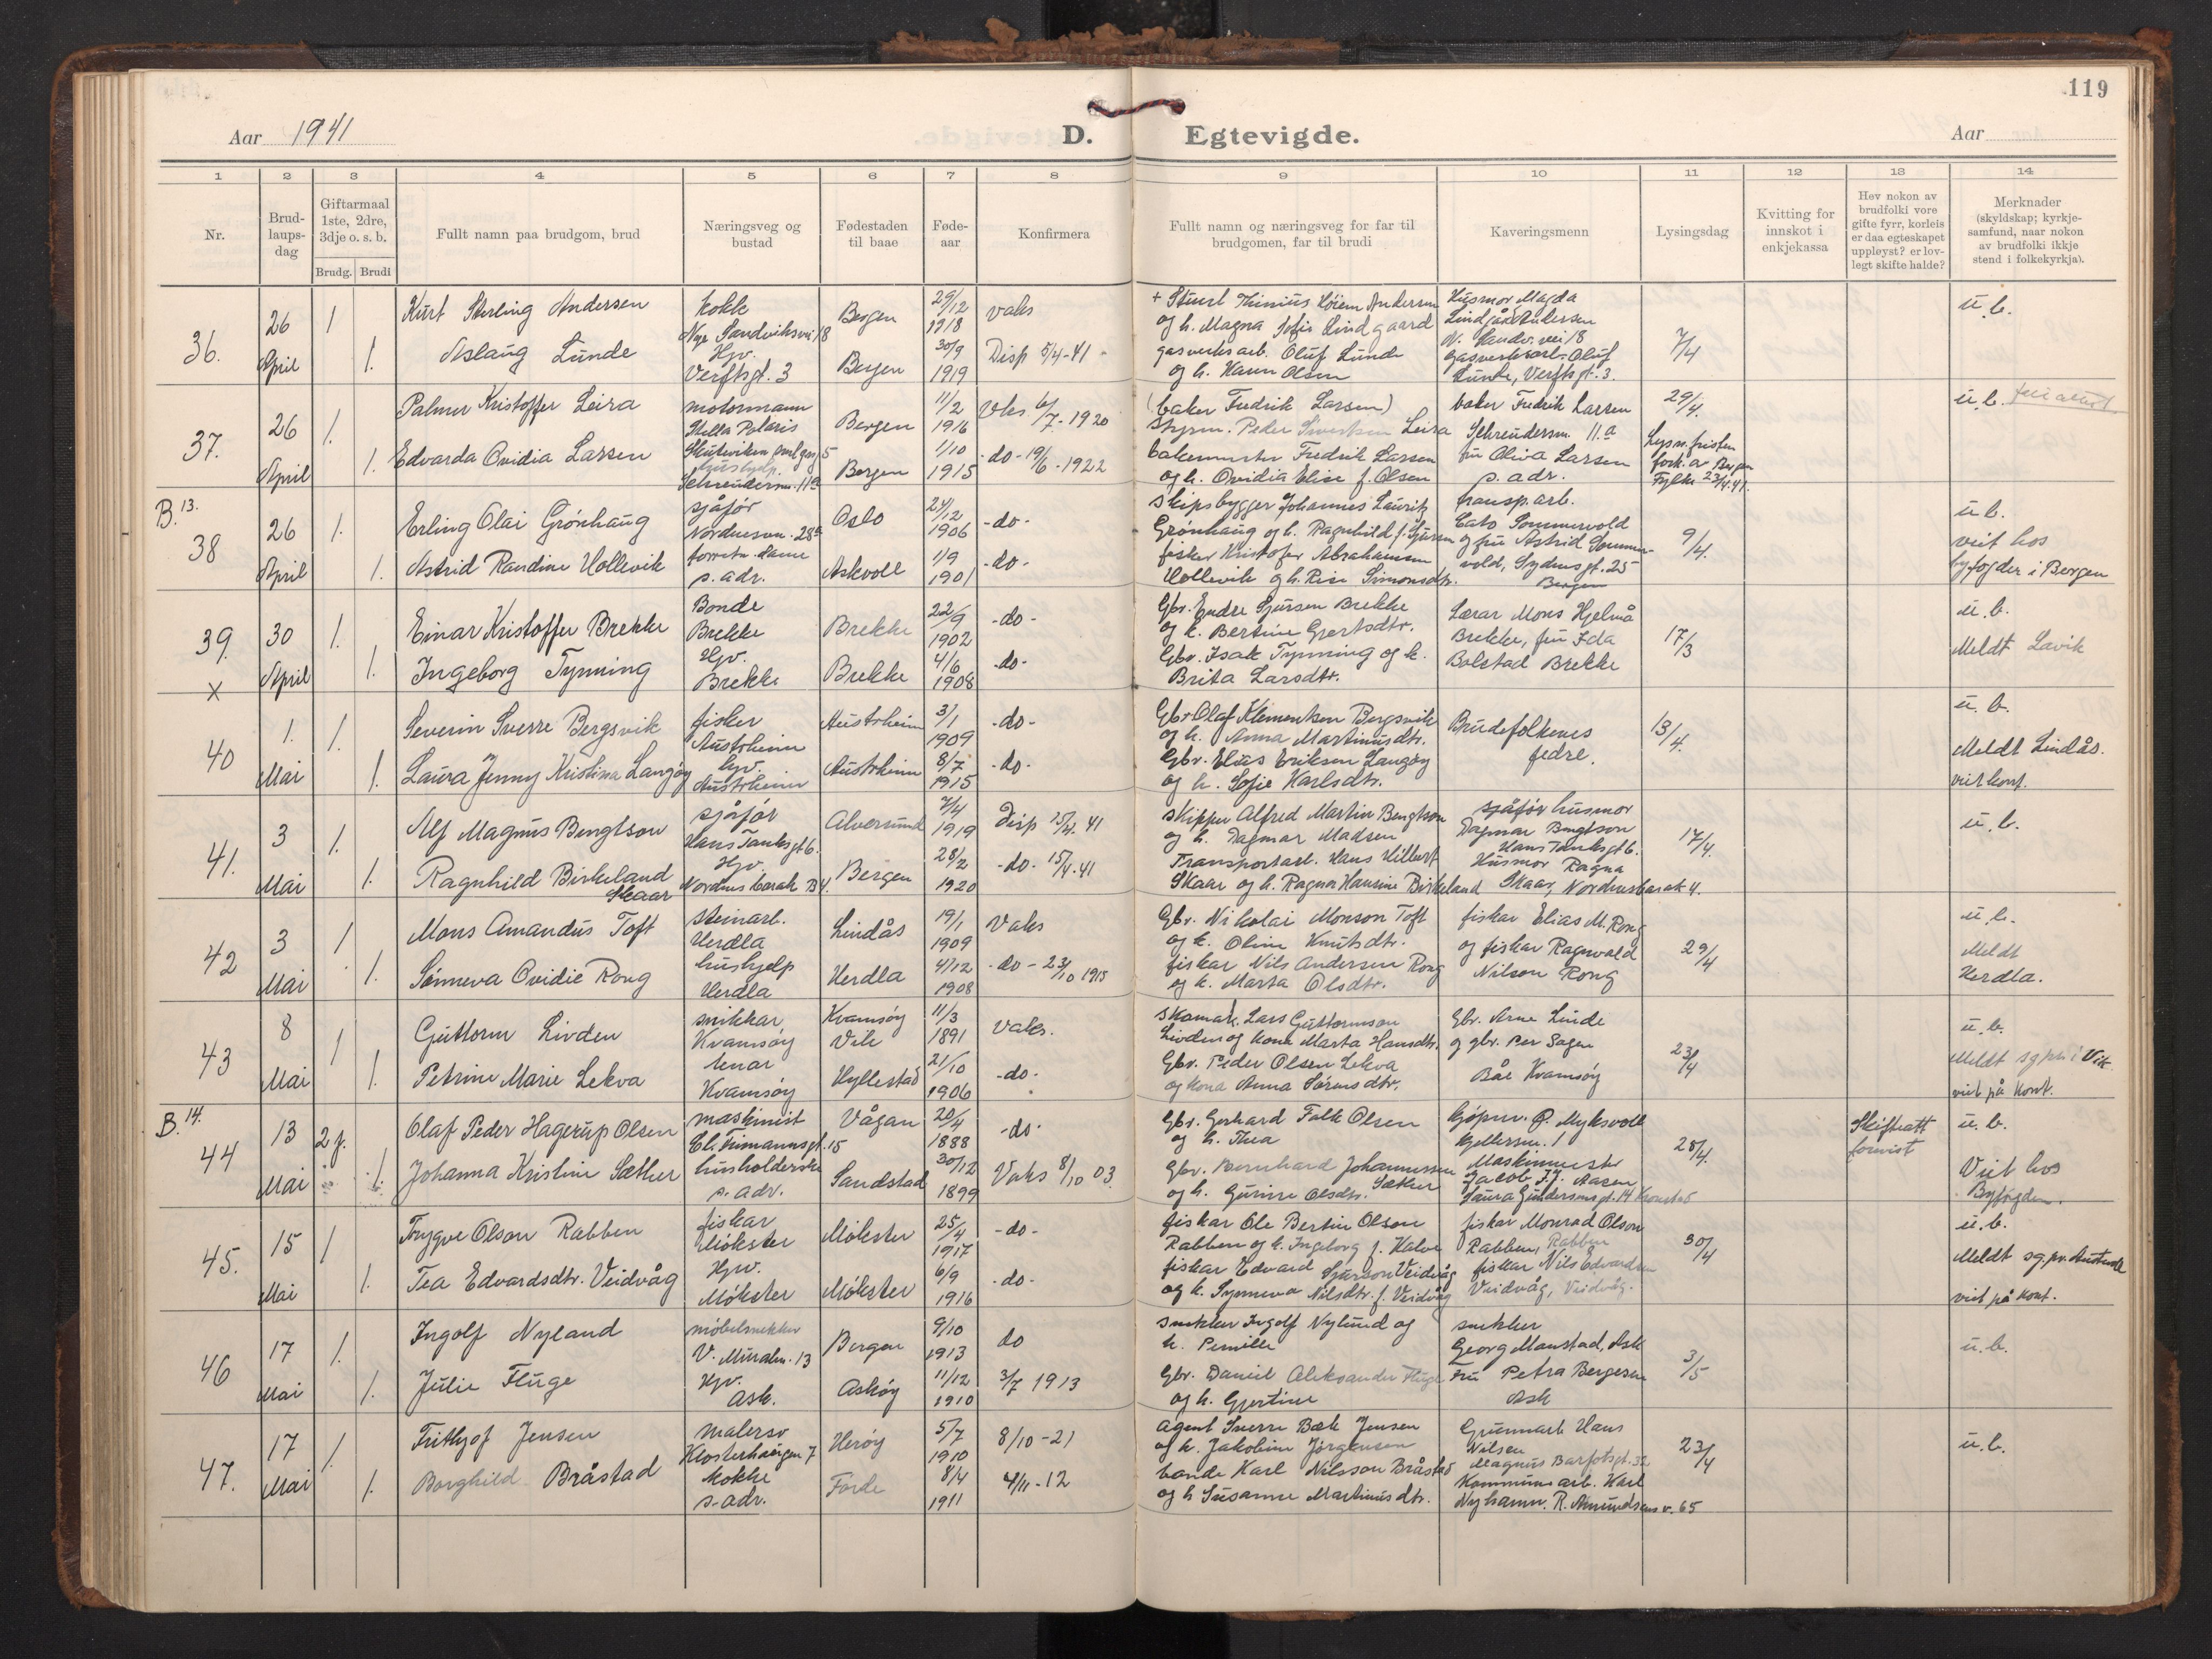 119
Aar 1941
D. Egtevigde.
Aar
1 2 3 4 5 6 7 8 9 10 11 12 13 14
Nr.
Brud-
laups-
dag
Giftarmaal
1ste, 2dre,
3dje o. s. b.
Brudg. Brudi
Fullt namn paa brudgom, brud
Næringsveg og
bustad
Fødestaden
til baae
Føde-
aar
Konfirmera
Fullt namn og næringsveg for far til
brudgomen, far til brudi
Kaveringsmenn
Lysingsdag
Kvitting for
innskot i
enkjekassa
Hev nokon av
brudfolki vore
gifte fyrr, korleis
er daa egteskapet
uppløyst? er lov-
legt skifte halde?
Merknader
(skyldskap; kyrkje-
samfund, naar nokon
av brudfolki ikkje
stend i folkekyrkja).
36. 26 April 1 1.
Kurt Sterling Andersen
kokk
Nye Sandviksvei 18
Bergen
29/12 1918
vaks
Aslaug Lunde
Hjv.
Verftsgt. 3
Bergen
30/9 1919
Disp 5/4-41 -
+ Thinius Høiem Andersen
og h. Magna Sofie Lindgaard
gasverksarb. Oluf Lunde
og h. Hann Olsen
Husmor Magda
Lindgård Andersen
N. Sandv. vei 18
gasverksarb. Oluf
Lunde, Verftsgt. 3.
7/4
u.b.
37. 26 April 1. 1.
Palmer Kristoffer Leira
motormann
Stella Polaris
Bergen
11/2 1916
Vaks 6/7-1920
Edvarda Ovidia Larsen
Skuteviken 5
hushjelp.
Schreudersm. 11a
Bergen
1/10 1915
-do- 19/6-1922
(baker Fredrik Larsen)
Styrm. Peder Leira
bakermester Fredrik Larsen
og h. Ovidia Elise f. Olsen
baker Fredrik Larsen
Schreudersm. 11.a
fru Oliva Larsen
s. adr.
29/4.
Lysn. fristen
fork. av Bergen
Fylke 23/4.41.
u.b.
B. 13.
38 26 April 1. 1.
Erling Olai Grønhaug
sjåfør
Nordnesvn. 28a
Oslo
24/12 1906
-do-
Astrid Randine Hollevik
forretn. dame
s. adr.
Askvoll
1/9 1901
-do-
Skipsbygger Johannes Lauritz
Grønhaug og h. Ragnhild f. Sjursen
fisker Kristofer Abrahamsen
Hollevik og h. Rise Simonsdtr.
transp. arb.
Cato Sommervold
og fru Astrid Sommer-
vold, Sydnesgt. 25
Bergen
9/4.
u.b.
veit hos
byfogden i Bergen
39. 30 April 1. 1.
x
Einar Kristoffer Brekke
Bonde
Brekke
Brekke
22/9 1902
-do-
Ingeborg Tynning
Hjv.
Brekke
Brekke
4/6 1908
-do-
Gbr. Endre Sjursen Brekke
og k. Bertine Gjertsdtr.
Gbr. Isak Tynning og k.
Brita Larsdtr.
Lærar Mons Hjelmå
Brekke, fru Ida
Bolstad Brekke
17/3
u.b.
Meldt Lavik
40 1. Mai 1. 1.
Severin Sverre Bergsvik
fisker
Austrheim
Austrheim
3/1 1909
-do-
Laura Jenny Kristina Langøy
hjv.
Austrheim
Austrheim
8/7 1915
-do-
Gbr. Olaf Klementsen Bergsvik
og h. Anna Martinusdtr.
Gbr. Elias Eriksen Langøy
og h. Sofie Karlsdtr.
Brudefolkenes
fedre.
13/4.
u.b.
Meldt Lindås.
veit kont.
41. 3 Mai 1. 1.
Alf Magnus Bengtson
sjåfør
Hans Tanksgt 6.
Alversund
7/4 1919
Disp 15/4. 41
Ragnhild Birkeland
Skaar
Hjv.
Nordnes barak B4.
Bergen
28/2 1920
-do- 15/4-41
Skipper Alfred Martin Bengtson
og h. Dagmar Madsen
Transportarb. Hans Hilbert
Skaar og h. Ragna Hansine Birkeland
sjåfør husmor
Dagmar Bengtson
Hans Tanksgt 6.
Husmor Ragna
Skaar, Nordnesbarak 4.
17/4.
u.b.
42 3 Mai 1 1.
Mons Amandus Toft
steinarb.
Herdla
Lindås
19/1 1909
Vaks
Sønneva Ovidie Rong
hushjelp
Herdla
Herdla
4/12 1908
-do- 23/10 1915
Gbr. Nikolai Monson Toft
og k. Oline Knutsdtr.
fiskar Nils Andersen Rong
og k. Marta Olsdtr.
fiskar Elias M. Rong
og fiskar Ragnvald
Nilson Rong
29/4
u.b.
Meldt
Herdla.
43 8 Mai 1 1.
Guttorm Livden
snikkar
Kvamsøy
Kvamsøy
Vik
11/3 1891
vaks.
Petrine Marie Lekva
tenar
Kvamsøy
Hyllestad
21/10 1906
-do-
Skomak. Lars Guttormson
Livden og kona Marta Hansdtr.
Gbr. Peder Olsen Lekva
og kona Anna Sørensdtr.
Gbr. Arne Linde
og gbr. Per Sagen
Båe Kvamsøy
23/4
u.b.
Meldt sg.pr. i Vik
veit på kont.
B. 14.
44 13 Mai 2 f. 1.
Olaf Peder Hagerup Olsen
maskinist
15
Vågan
20/4 1888
-do-
Johanna Kristine Sæther
husholderske
s. adr.
Sandstad
30/12 1899
Vaks 8/10 03.
Gbr. Gerhard Falk Olsen
og h. Thea
Gbr. Bernhard Johannessen
og h. Gurine Olsdtr. Sæther
kjøpm. P. Myksvoll
Kjellersm. 1
Maskinmester
Jacob F.J. Aasen
Laura Gundersensgt. 14 Kronstad
28/4.
Skifteatt.
forevist
u.b.
Veit hos
Byfogden.
45. 15 Mai 1 1.
Trygve Olson Rabben
fiskar
Møkster
Møkster
25/4 1917
-do-
Tea Edvardsdtr. Veidvåg
Hjv.
Møkster
Møkster
6/9 1916
-do-
fiskar Ole Bertin Olson
Rabben og k. Ingeborg f. Kalve
fiskar Edvard Sjurson Veidvåg
og k. Synneva Nilsdtr. f. Veidvåg
fiskar Monrad Olson
Rabben, Rabben
fiskar Nils Edvardsen
Veidvåg, Veidvåg.
30/4
u.b.
Meldt sg. pr. Austevoll
veit på kont.
46 17 Mai 1. 1.
Ingolf Nyland
møbelsnekker
V. Muralm. 13
Bergen
9/10 1913
do
Julie Fluge
Hjv.
Ask.
Askøy
11/12 1910
3/7 1913
snekker Ingolf Nylund og
h. Pernille
Gbr. Daniel Aleksander Fluge
og h. Gjertine
snekker
Georg Monstad, Ask
Fru Petra Bergesen
Ask
3/5
u.b.
47. 17 Mai 1. 1.
Frithjof Jensen
malersv
Klosterhaugen 7
Herøy
5/7 1910
8/10-21
Borghild Bråstad
kokke
s. adr.
Førde
8/4 1911
4/11-12
agent Sverre Bæk Jensen
og h. Jakobine Jørgensen
bonde Karl Nilsson Bråstad
og h Susanne Martinusdtr.
Grunnarb. Hans
Nilsen
Magnus Barfotsgt. 32
Kommunearb. Karl
Nyhamn. R. Amundsens v. 65
23/4
u.b.